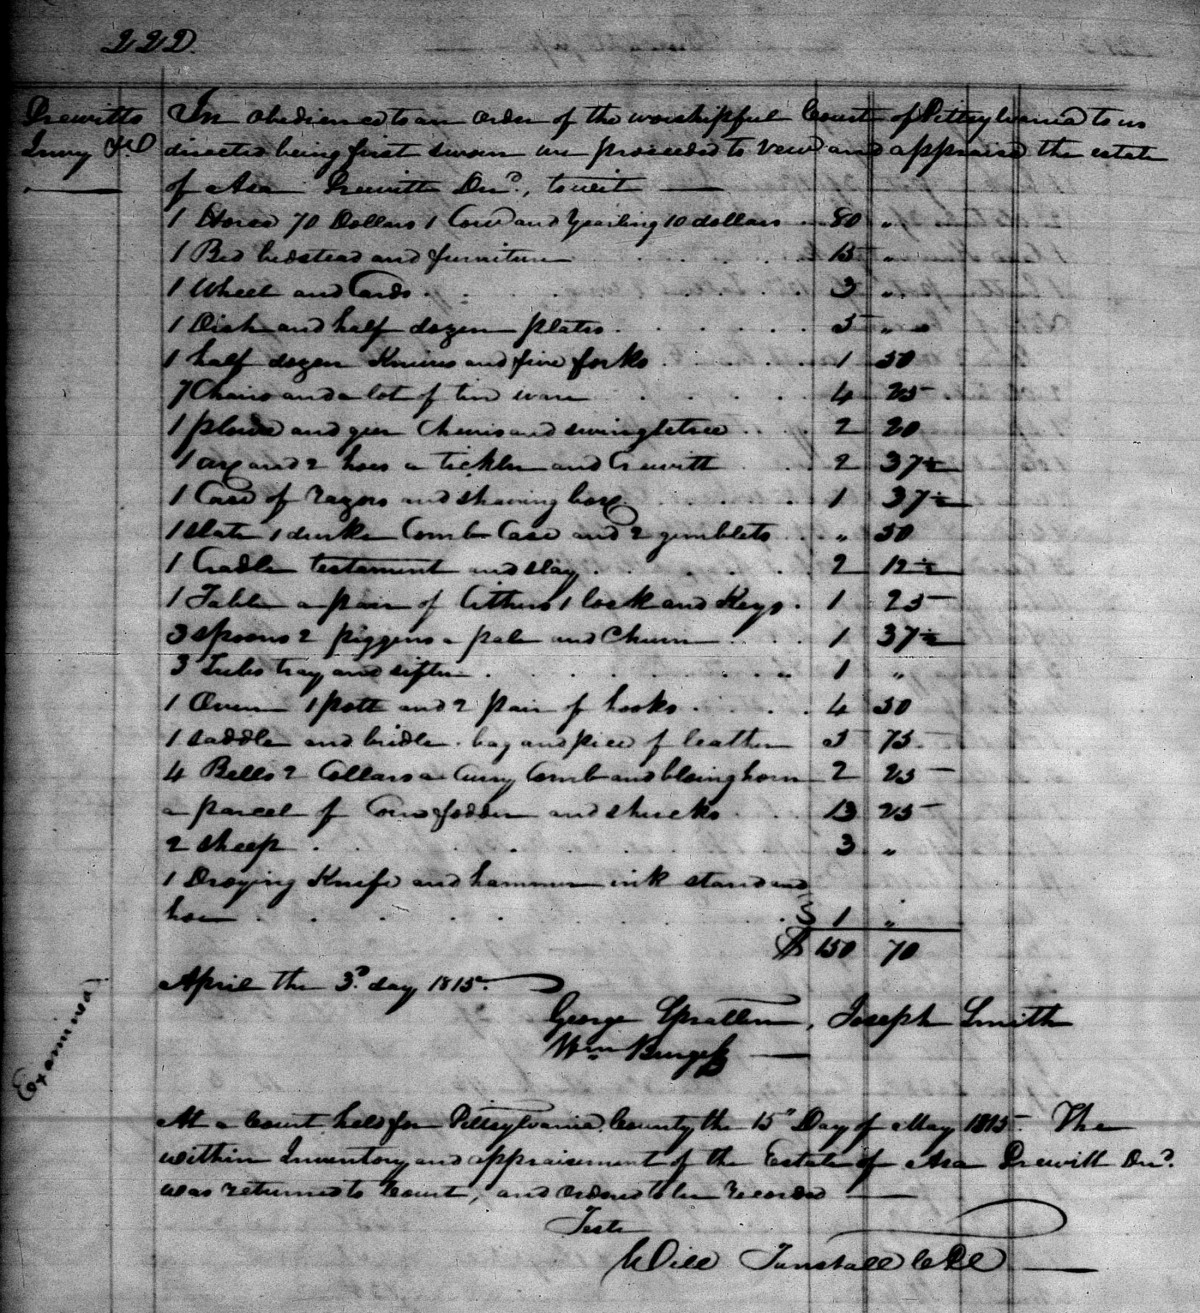 222.
Prewitts Invy &c
In obedience to an order of the worshipful Court of Pittsylvania to us
directed being first sworn we proceeded to view and appraise the estate
of Asa Prewitt Decd., towit
1 Horse 70 Dollars 1 Cow and Yearling 10 dollars .. 80 "
1 Bed bedstead and furniture . . . . . 15 "
1 Wheel and Cards . . . . . 3 "
1 Dish and half dozen plates . . . . . 3 "
1 half dozen Knives and five forks . . . . 1 50
7 Chairs and a lot of tin ware . . . . 4 25
1 plow and geer Clevis and swingletree . . . 2 20
1 axe and 2 hoes a tickler and Crewitt . . 2 37½
1 Case of razors and shaving box . . . . 1 37½
1 slate 1 Comb Case and 2 gimblets . . " 50
1 Cradle testament and slay . . . . 2 12½
1 Table a pair of 1 lock and Keys . 1 25
3 spoons 2 piggens a pale and Churn . . 1 37½
3 Tubs tray and sifter . . . . . 1 "
1 Oven 1 pott and 2 pair of hooks . . . . 4 50
1 saddle and bridle bag and piece of leather 5 75
4 Bells 2 Collars a Curry Comb and bloing horn 2 25
a parcel of Corn fodder and shucks . . 13 25
2 sheep . . . . . . 3 "
1 Droying Knife and hammer ink stand and
hoe . . . . . . 1 "
$ 150 70
April the 3d. day 1815.
George Spratten, Joseph Smith
Wm Burgess
Examined
At a Court held for Pittsylvania County the 15" Day of May 1815. The
within Inventory and appraisement of the Estate of Asa Prewitt Decd.
was returned to Court, and ordered to be recorded
Teste
Will Tunstall CPC